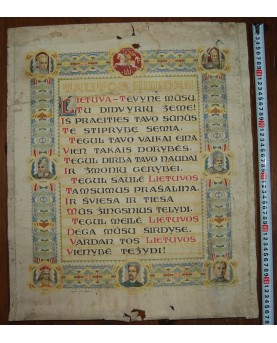 TAUTOS HIMNAS
LIETUVA-TĖVYNE MŪSŲ
TU DIDVYRIŲ ŽEME!
IŠ PRAEITIES TAVO SŪNŪS
TE STIPRYBĘ SEMIA.
TEGUL TAVO VAIKAI EINA
VIEN TAKAIS DORYBĖS,
TEGUL DIRBA TAVO NAUDAI
IR ŽMONIŲ GĖRYBEI.
TEGUL SAULĖ LIETUVOS
TAMSUMUS PRAŠALINA,
IR ŠVIESA IR TIESA
MŪS ŽINGSNIUS TELYDI.
TEGUL MEILĖ LIETUVOS
DEGA MŪSŲ ŠIRDYSE,
VARDAN TOS LIETUVOS
VIENYBĖ TEŽYDI!